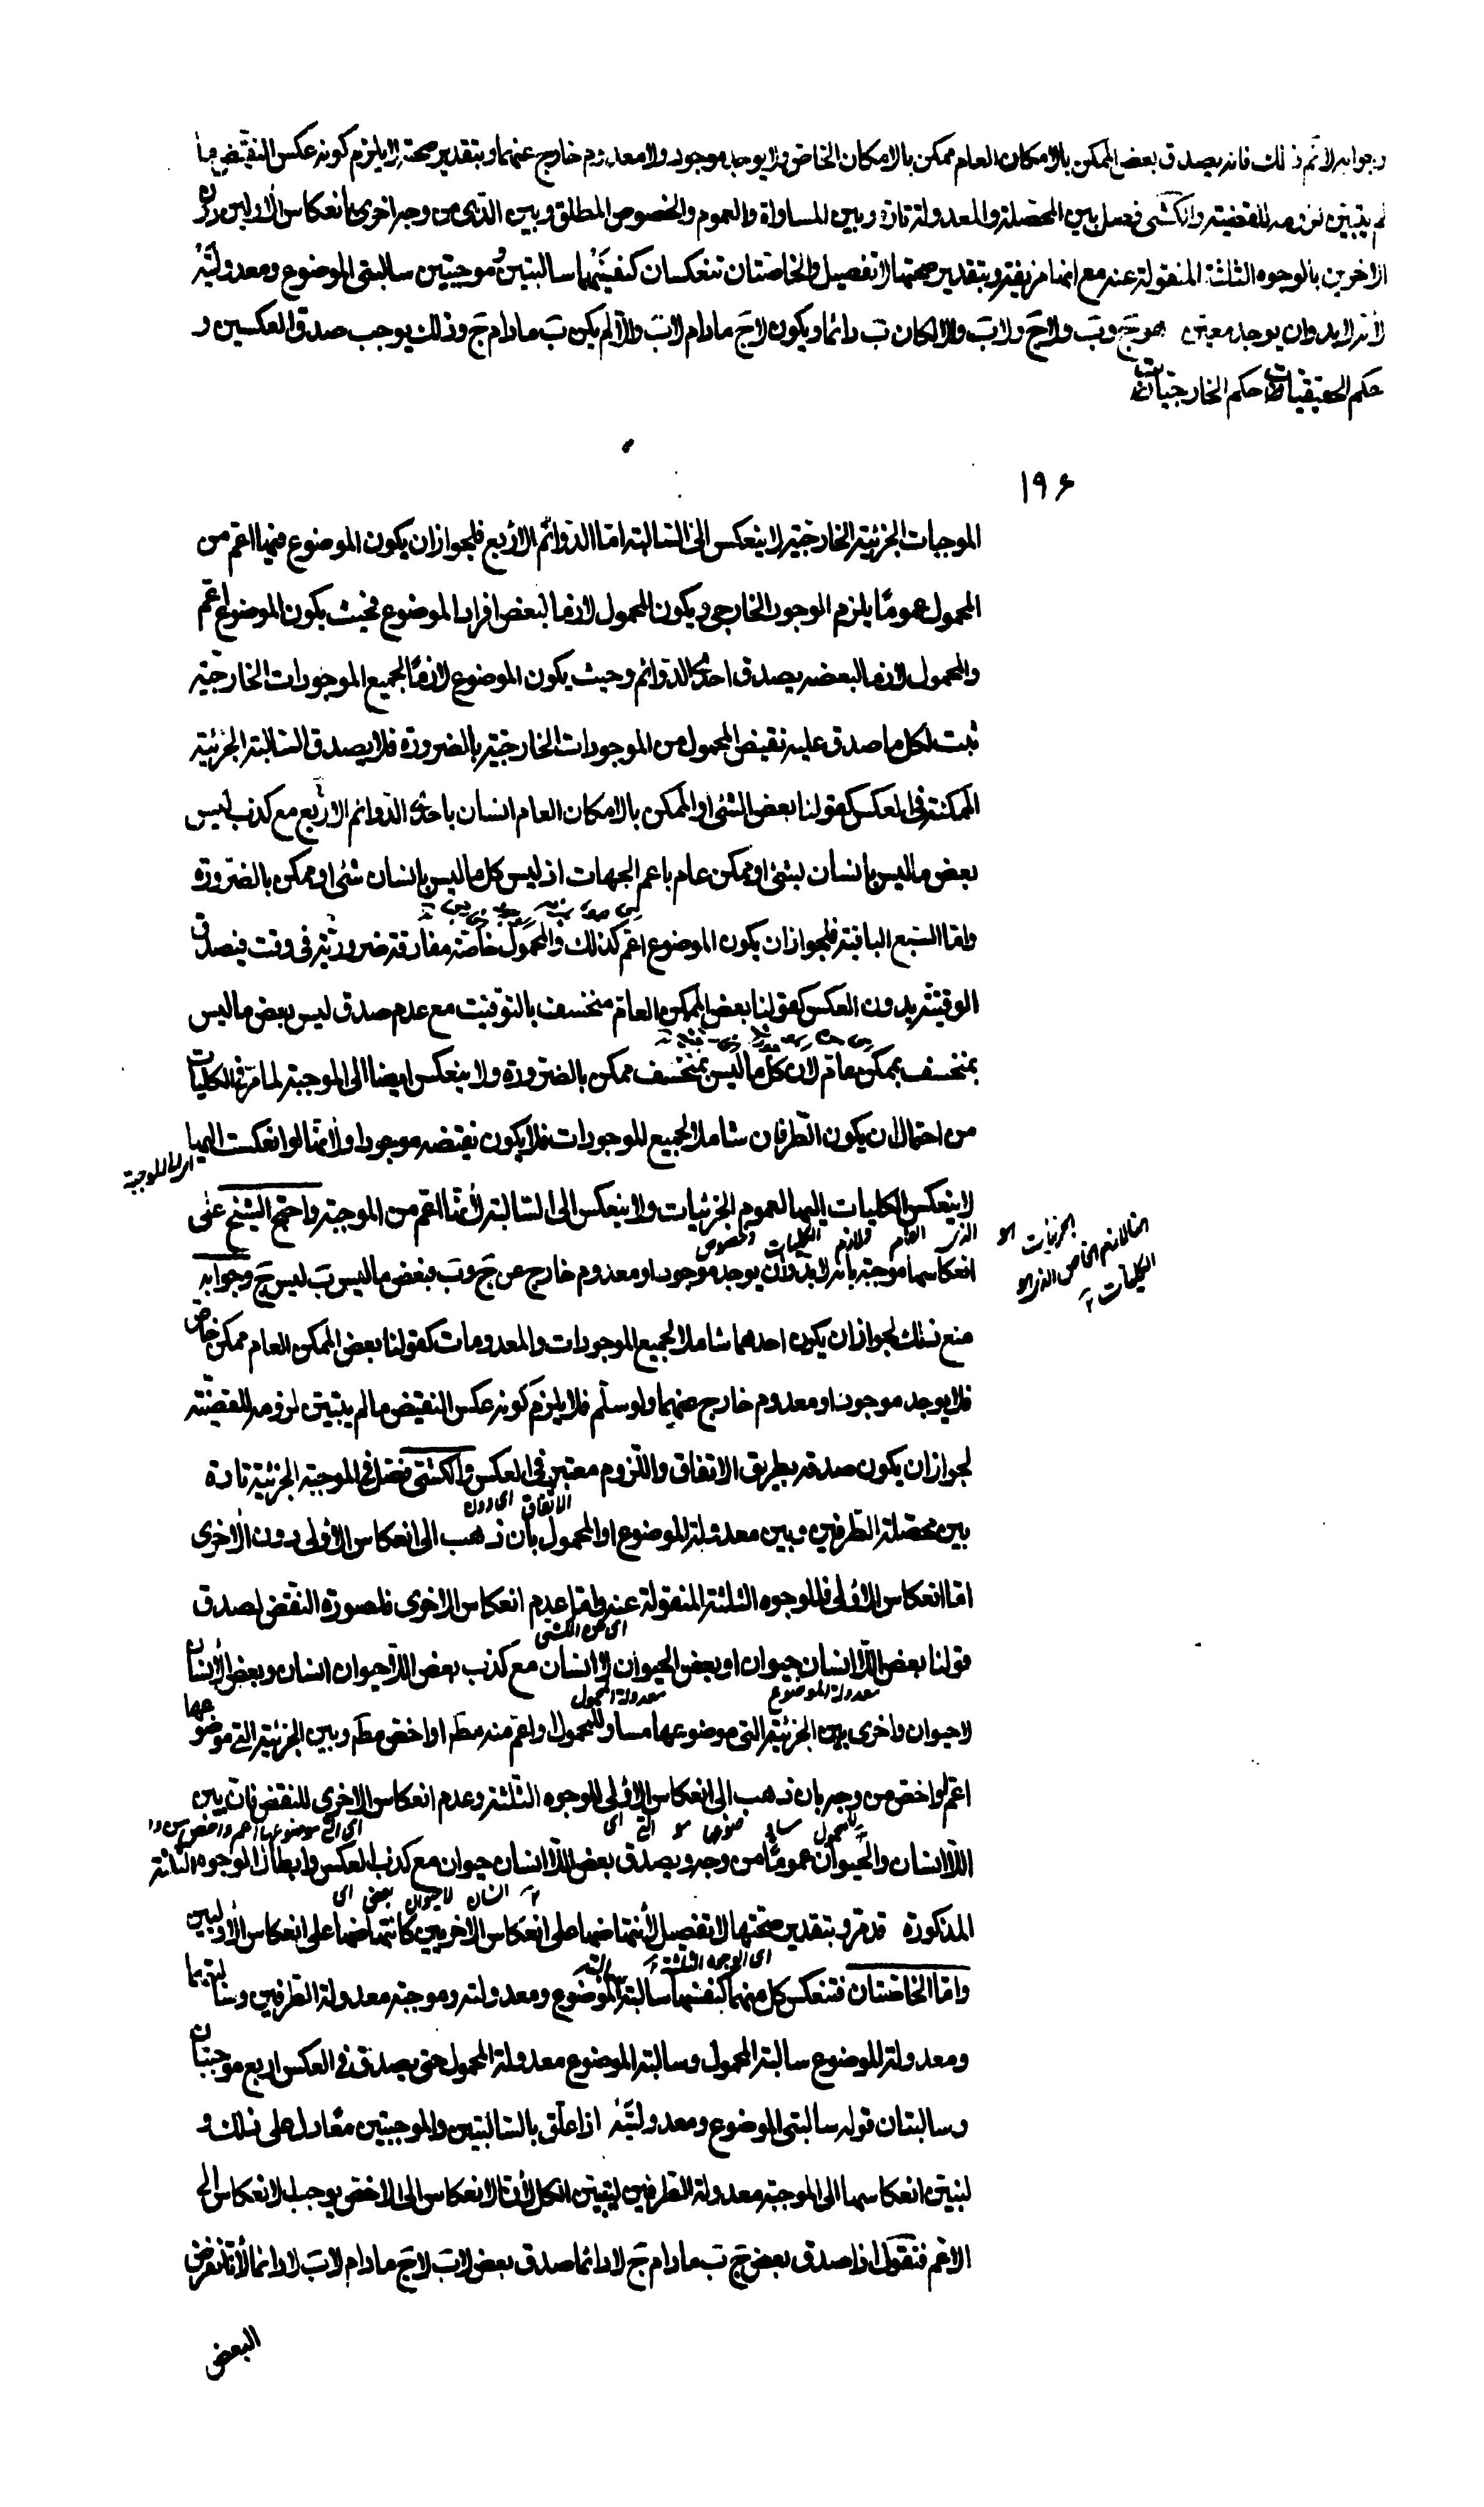 وجوابه لا نم ذلك فانه يصدق بعض الممكن بالامكان العام ممكن بالامكان الخاص ولا يوجد موجود ولا معدوم خارج عنهما وبتقدير صحته لا يلزم كونه عكس النقيض ما
لم يتبين لزومه للقضية والكشى فصل بين المحصلة والمعدولة تارة وبين المساواة والعموم والخصوص المطلق وبين الذى من وجه اخرى بانعكاس الاولين دون
الاخرين بالوجوه الثلثة المنقولة عنه مع انها مزيفة وبتقدير صحتها لا تفصيل والخاصتان تنعكسان كنفسيهما سالبتين وموجبتين سالبتى الموضوع ومعدولتيه
لانه لا بد وان يوجد معين هو ج وب ولا ج ولا ب والا لكان ب دائما ويكون لا ج مادام لا ب والا لم يكن ب مادام ج وذلك يوجب صدق العكسين و
حكم الحقيقيات حكم الخارجيات
١٩۶
الموجبات الجزئية الخارجية لا ينعكس الى السالبة اما الدوائم الاربع فلجواز ان يكون الموضوع فيها اعم من
المحمول عموما يلزم الوجود الخارجى ويكون المحمول لازما لبعض افراد الموضوع فحيث يكون الموضوع اعم
والمحمول لازما لبعضه يصدق احدى الدوائم وحيث يكون الموضوع لازما لجميع الموجودات الخارجية
ثبت لكل ما صدق عليه نقيض المحمول من الموجودات الخارجية بالضرورة فلا يصدق السالبة الجزئية
الممكنة فى العكس كقولنا بعض الشئ او الممكن بالامكان العام انسان باحدى الدوائم الاربع مع كذب ليس
بعض ما ليس بانسان بشئ او ممكن عام باعم الجهات اذ ليس كل ما ليس بانسان شئ او ممكن بالضرورة
واما السبع الباقية فلجواز ان يكون الموضوع اعم كذلك والمحمول خاصة مفارقة ضرورية فى وقت فيصدق
الوقتية بدون العكس كقولنا بعض الممكن العام منخسف بالتوقيت مع عدم صدق ليس بعض ما ليس
بمنخسف بممكن عام لان كل ما ليس بمنخسف ممكن بالضرورة ولا ينعكس ايضا الى الموجبة لما مر فى الكليات
من احتمال ان يكون الطرفان شاملا لجميع الموجودات فلا يكون نقيضه موجودا ولانها لو انعكست اليها
اى الى الموجبة
لا ينعكس الكليات اليها لعموم الجزئيات ولا ينعكس الى السالبة لانها اعم من الموجبة واحتج الشيخ على
انعكاسها موجبة بانه لا بد وان يوجد موجود او معدوم خارج عن ج وب فبعض ما ليس ب ليس ج وجوابه
منع ذلك لجواز ان يكون احدهما شاملا لجميع الموجودات والمعدومات كقولنا بعض الممكن العام ممكن خاص
فلا يوجد موجود او معدوم خارج عنهما ولو سلم فلا يلزم كونه عكس النقيض ما لم يتبين لزومه للقضية
لجواز ان يكون صدقه بطريق الاتفاق واللزوم معتبر فى العكس والكشى فصل فى الموجبة الجزئية تارة
الاتفاق اى دون
بين محصلة الطرفين وبين معدولة الموضوع او المحمول بان ذهب الى انعكاس الاولى دون الاخرى
اما انعكاس الاولى فللوجوه الثلثة المنقولة عنه واما عدم انعكاس الاخرى فلصورة النقض لصدق
اى عن الكشى
قولنا بعض اللاانسان حيوان او بعض الحيوان لا انسان مع كذب بعض اللاحيوان انسان وبعض الانسان
معدولة الموضوع معدولة المحمول
لا حيوان واخرى بين الجزئية التى موضوعها مساو للمحمول او اعم منه مط او اخص مط وبين الجزئية التى موضوعها
اعم او اخص من وجه بان ذهب الى انعكاس الاولى للوجوه الثلثة وعدم انعكاس الاخرى للنقض فان بين
اللاانسان والحيوان عموما من وجه ويصدق بعض اللاانسان حيوان مع كذب العكس وابطال الوجوه الثلثة
اى بعض لا حيوان انسان
المذكورة قد مر وبتقدير صحتها لا تفصيل لانتهاضها على انعكاس الاخريين كانتهاضها على انعكاس الاوليين
اى الوجوه الثلثة
واما الخاصتان فتنعكس كل منهما كنفسها سالبة الموضوع ومعدولته وموجبة معدولة الطرفين وسالبتهما
ومعدولة الموضوع سالبة المحمول وسالبة الموضوع معدولة المحمول حتى يصدق فى العكس اربع موجبتان
وسالبتان قوله سالبتى الموضوع ومعدولتيه اذا علق بالسالبتين والموجبتين معا دل على ذلك و
لنبين انعكاسها الى الموجبة معدولة الطرفين ليتبين الكل لان الانعكاس الى الاخص يوجب الانعكاس الى
الاعم فنقول اذا صدق بعض ج ب مادام ج لا دائما صدق بعض لا ب لا ج مادام لا ب لا دائما لانا نفرض
البعض